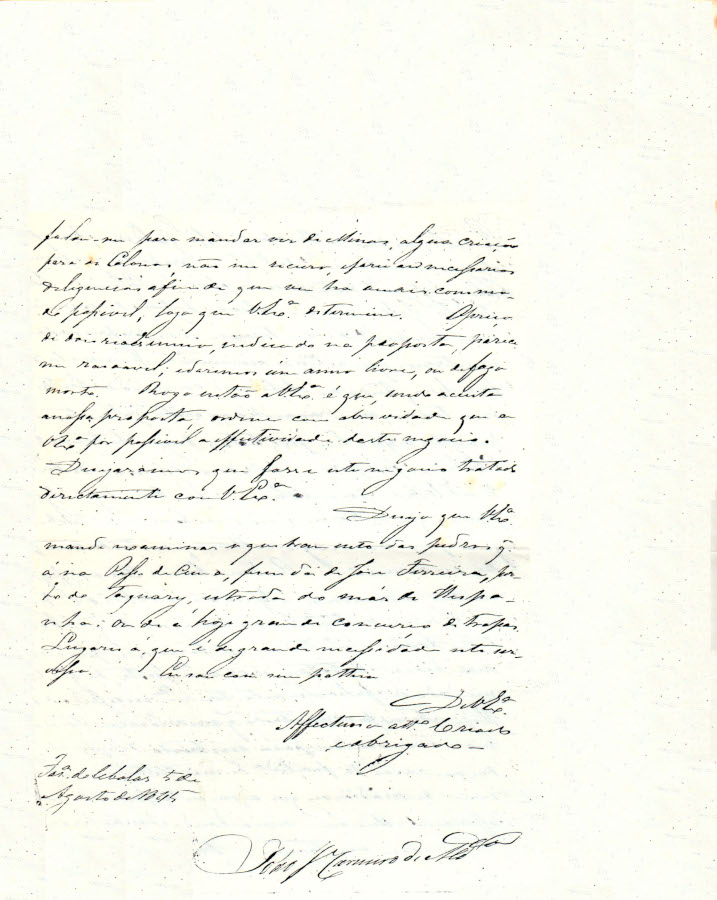 para mandar vir de Minas, algua criação
para os Colonos, não me recuso, e farei as necessarias
diligencias afim de que venha a mais commo-
do possivel, logo que V. Exª. determine. O preço
de dous indicado na proposta, parece
me rasoavel; e daremos um anno livre, ou de fogo
morto. Rogo então a V. Exª é que, sendo aceita
a nossa proposta, ordene com a brevidade que a
V. Exª for possivel a effectividade deste negocio.
Desejaramos que fosse este negocio tratado
directamente com V. Exª.
Desejo que V. Exª.
mande examinar o das pedras q.
á no Passo de Cima, fasenda de Jose Ferreira, per-
to do Taquary, estrada do
onde é hoje grande concurso de tropas.
Lugar é, que é de grande necessidade
Eu sou com
De V. Exª.
Affectuoso attº. Criado
e obrigado
5 de
Agosto de 1845
João Carneiro de